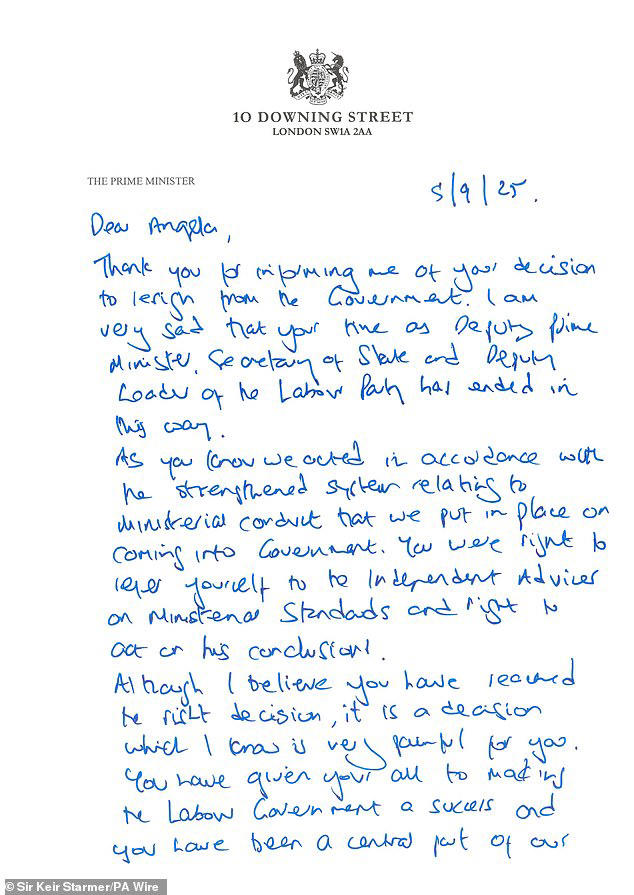 10 DOWNING STREET
LONDON SW1A 2AA
THE PRIME MINISTER
5/9/25.
Dear Angela,
Thank you for informing me of your decision
to resign from the Government. I am
very sad that your time as Deputy Prime
Minister, Secretary of State and Deputy
Leader of the Labour Party has ended in
this way.
As you know we acted in accordance with
the strengthened system relating to
Ministerial conduct that we put in place on
coming into Government. You were right to
refer yourself to the Independent Adviser
on Ministerial Standards and right to
act on his conclusions.
Although I believe you have reached
the right decision, it is a decision
which I know is very painful for you.
You have given your all to making
the Labour Government a success and
you have been a central part of our
© Sir Keir Starmer/PA Wire